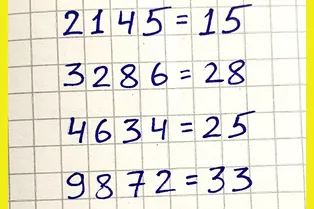 2145=15
3286=28
4634=25
9872=33